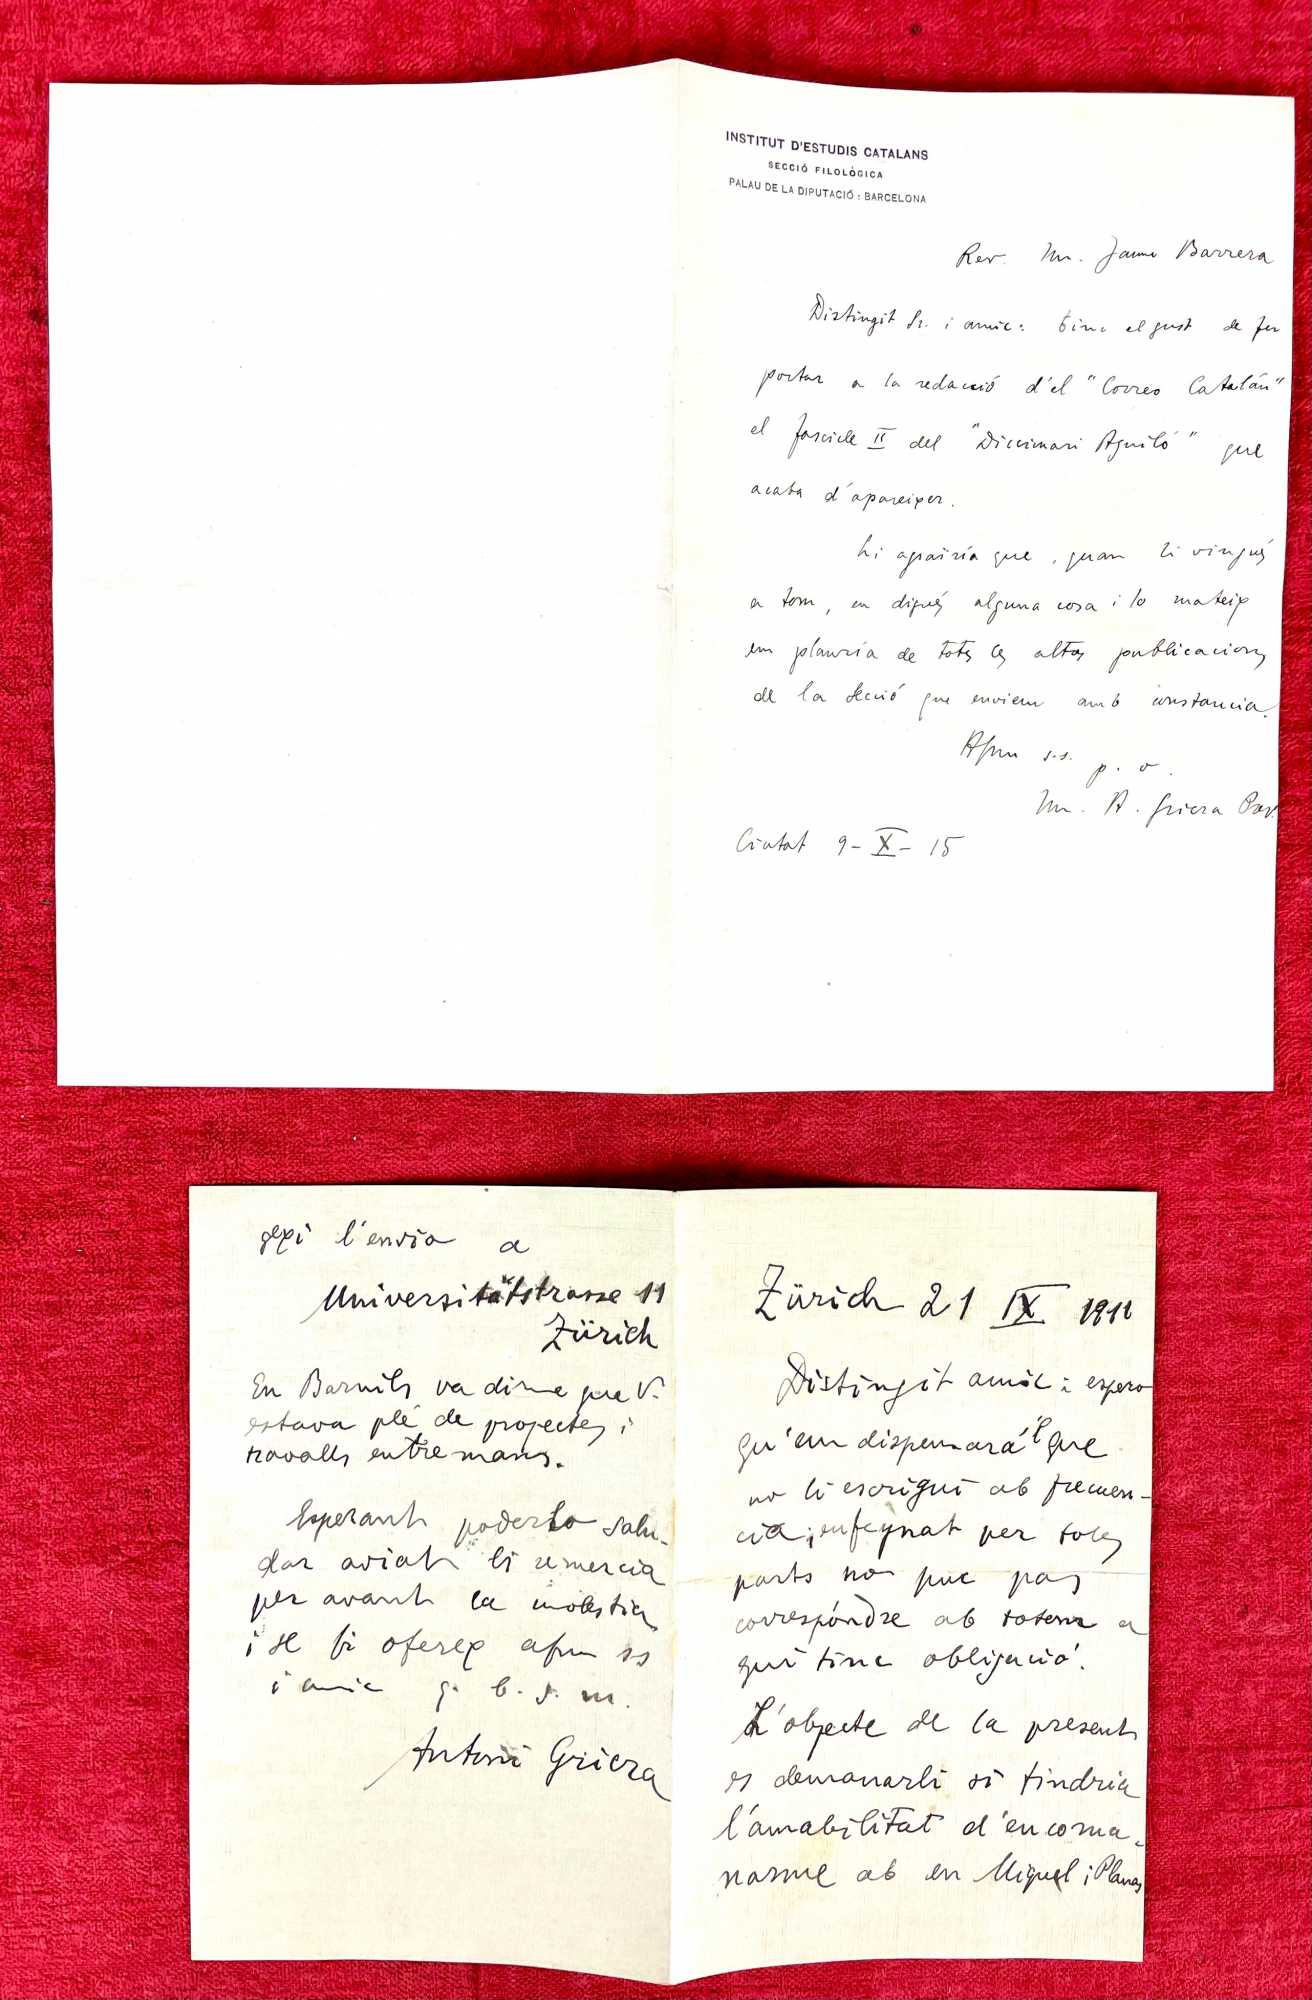 INSTITUT D'ESTUDIS CATALANS
SECCIÓ FILOLÒGICA
PALAU DE LA DIPUTACIÓ : BARCELONA
Rev. Mn. Jaume Barrera
Distingit Sr. i amic: tinc el gust de fer
portar a la redacció d'el "Correo Catalán"
el fascicle II del "Diccionari Aguiló" que
acaba d'apareixer.
Li agrairía que, quan li vingués
a tom, en digués alguna cosa i lo mateix
em plauría de totes les altres publicacions
de la Secció que enviem amb constancia.
Afm s.s.
p. o.
Mn. A. Griera Pvre.
Ciutat 9-X-15
gexi l'envia a
Universitätstrasse 11
Zürich
En Barnils va dirme que V.
estava plé de projectes i
travalls entre mans.
Esperant poderlo salu-
dar aviat li remercia
per avant la molestia
i se li oferex afm ss
i amic q. b. s. m.
Antoni Griera
Zürich 21 IX 1911
Distingit amic: espero
qu'em dispensará 'l que
no li escrigui ab frecuen-
cia; enfeynat per totes
parts no puc pas
correspóndre ab totom a
qui tinc obligació.
L'objecte de la present
es demanarli si tindria
l'amabilitat d'encoma-
narme ab en Miquel i Planas